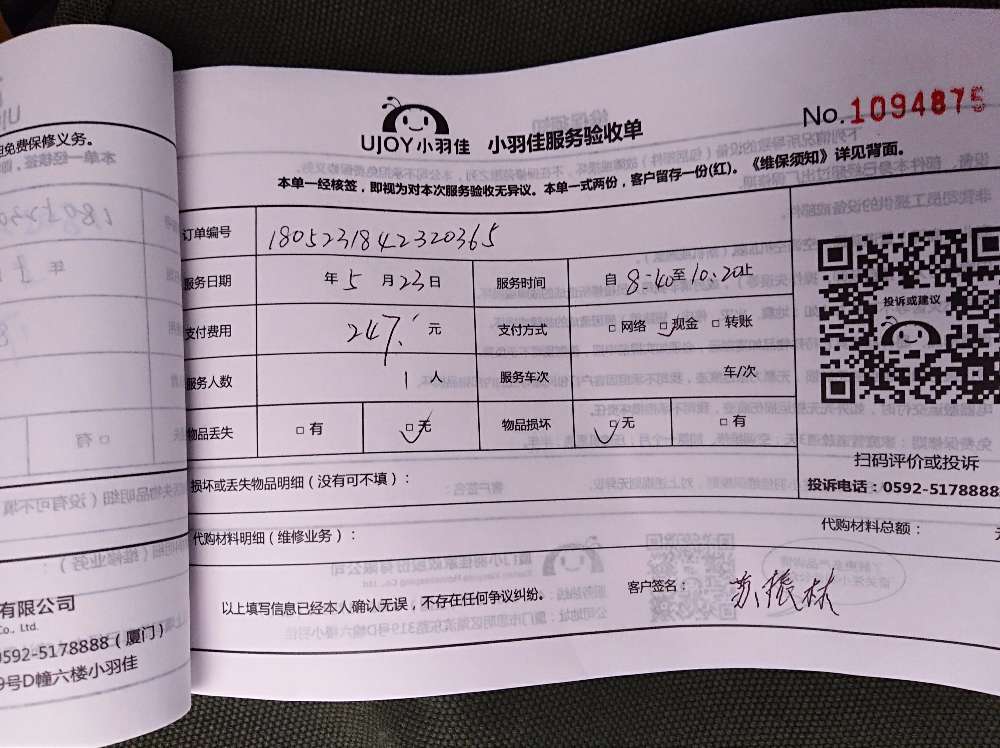 的免费保修义务。
UJOY小羽佳 小羽佳服务验收单
No.1094875
本单一经核签，即视为对本次服务验收无异议。本单一式两份，客户留存一份(红)。《维保须知》详见背面。
订单编号 1805231842320365
服务日期 年5月23日 服务时间 自8:40至10:20止
支付费用 247. 元 支付方式 □网络 □现金 □转账
服务人数 1人 服务车次 车/次
物品丢失 □有 □无 物品损坏 □无 □有
投诉或建议
扫码评价或投诉
投诉电话：0592-5178888
损坏或丢失物品明细（没有可不填）：
代购材料明细（维修业务）：
代购材料总额：
以上填写信息已经本人确认无误，不存在任何争议纠纷。
客户签名：苏振林
有限公司
Co., Ltd.
0592-5178888（厦门）
9号D幢六楼小羽佳